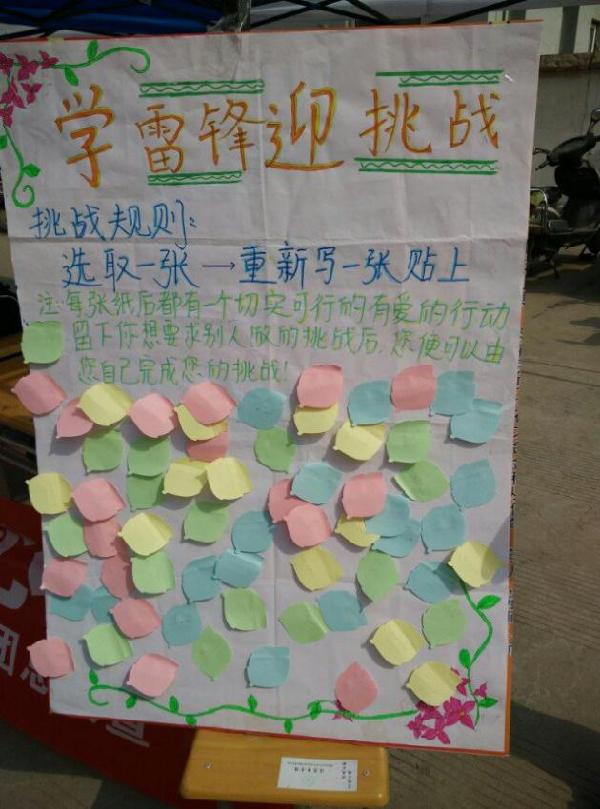 学雷锋迎挑战
挑战规则:
选取一张→重新写一张贴上
注:每张纸后都有一个切实可行的有爱的行动
留下你想要求别人做的挑战后,您便可以由
您自己完成您的挑战!